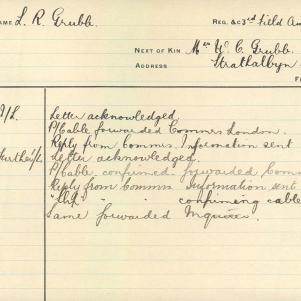 NAME L. R. Grubb. REG. &c 3rd Field Am
NEXT OF KIN Mrs W. C. Grubb.
ADDRESS Strathalbyn
Letter acknowledged
P/Cable forwarded Commrs London.
Reply from Commrs. Information sent
Letter acknowledged.
P/Cable confirmed forwarded Com
Reply from Commrs Information sent
" " " confirming cable
Same forwarded Inquirer.